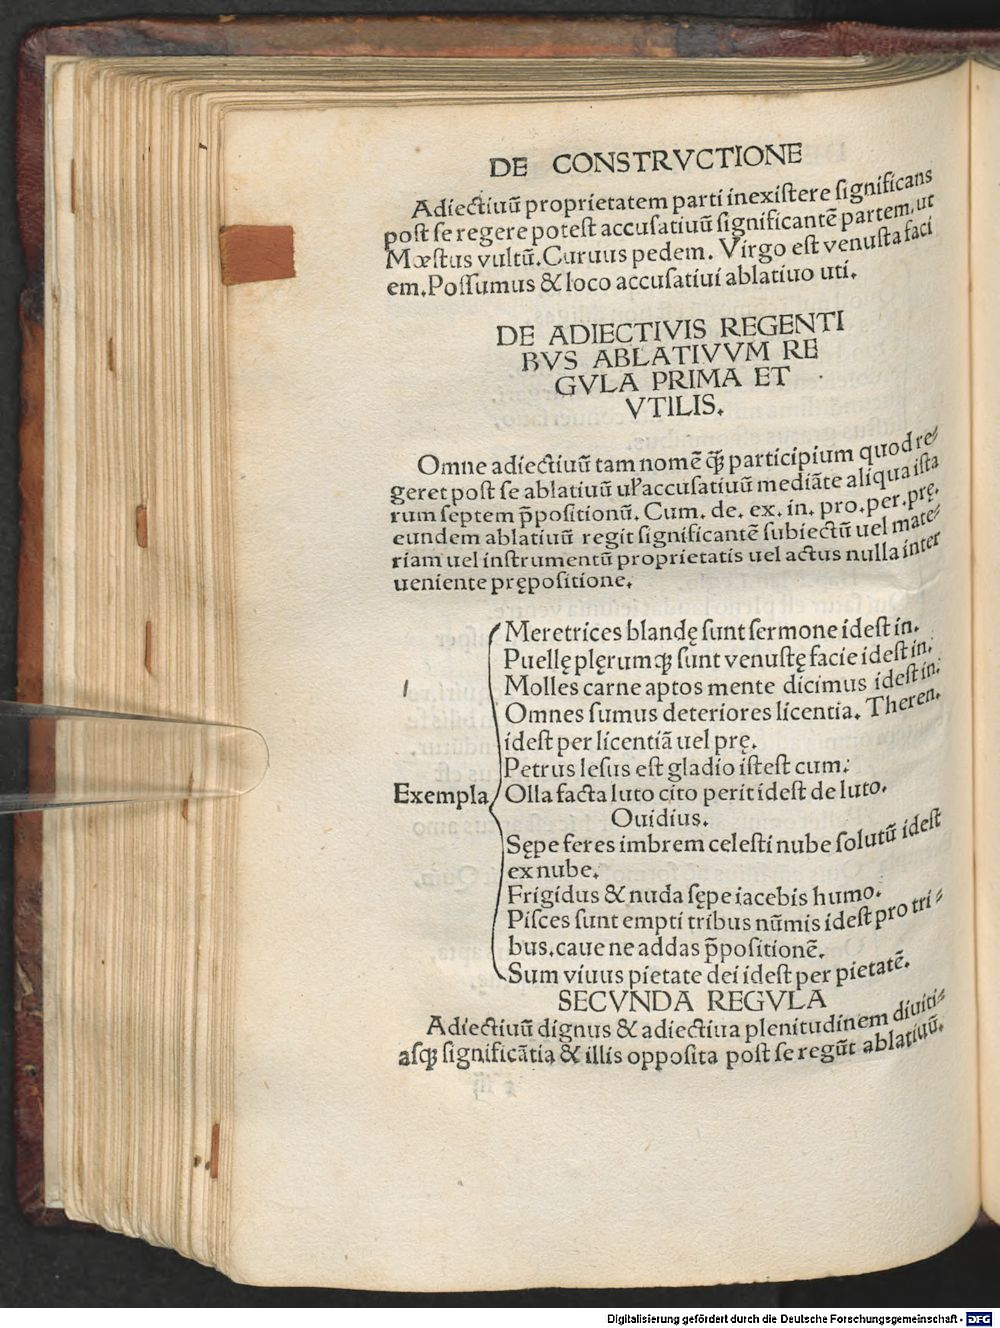 DE CONSTRVCTIONE
Adiectiuū proprietatem parti inexiſtere ſignificans
poſt ſe regere poteſt accuſatiuū ſignificantē partem, ut
Mœſtus vultū. Curuus pedem. Virgo eſt venuſta faci
em. Poſſumus & loco accuſatiui ablatiuo uti.
DE ADIECTIVIS REGENTI
BVS ABLATIVVM RE
GVLA PRIMA ET
VTILIS.
Omne adiectiuū tam nomē ꝙ̄ participium quod re⸗
geret poſt ſe ablatiuū uł accuſatiuū mediāte aliqua iſta
rum ſeptem p̄poſitionū. Cum. de. ex. in. pro. per. prę.
eundem ablatiuū regit ſignificantē ſubiectū uel mate⸗
riam uel inſtrumentū proprietatis uel actus nulla inter
ueniente prępoſitione.
Meretrices blandę ſunt ſermone ideſt in.
Puellę plęrumꝙ ſunt venuſtę facie ideſt in.
Molles carne aptos mente dicimus ideſt in.
Omnes ſumus deteriores licentia. Theren.
ideſt per licentiā uel prę.
Petrus Ieſus eſt gladio iſteſt cum.
Exempla Olla facta luto cito perit ideſt de luto.
Ouidius.
Sępe feres imbrem celeſti nube ſolutū ideſt
ex nube.
Frigidus & nuda ſępe iacebis humo.
Piſces ſunt empti tribus nūmis ideſt pro tri⸗
bus. caue ne addas p̄poſitionē.
Sum viuus pietate dei ideſt per pietatē.
SECVNDA REGVLA
Adiectiuū dignus & adiectiua plenitudinem diuiti⸗
aſꝙ ſignificātia & illis oppoſita poſt ſe regūt ablatiuū.
Digitalisierung gefördert durch die Deutsche Forschungsgemeinschaft - DFG